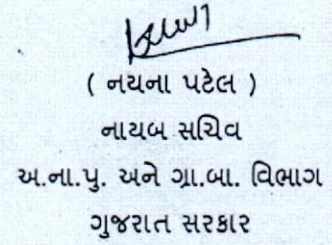 ( નયના પટેલ )
નાયબ સચિવ
અ.ના.પુ. અને ગ્રા.બા. વિભાગ
ગુજરાત સરકાર